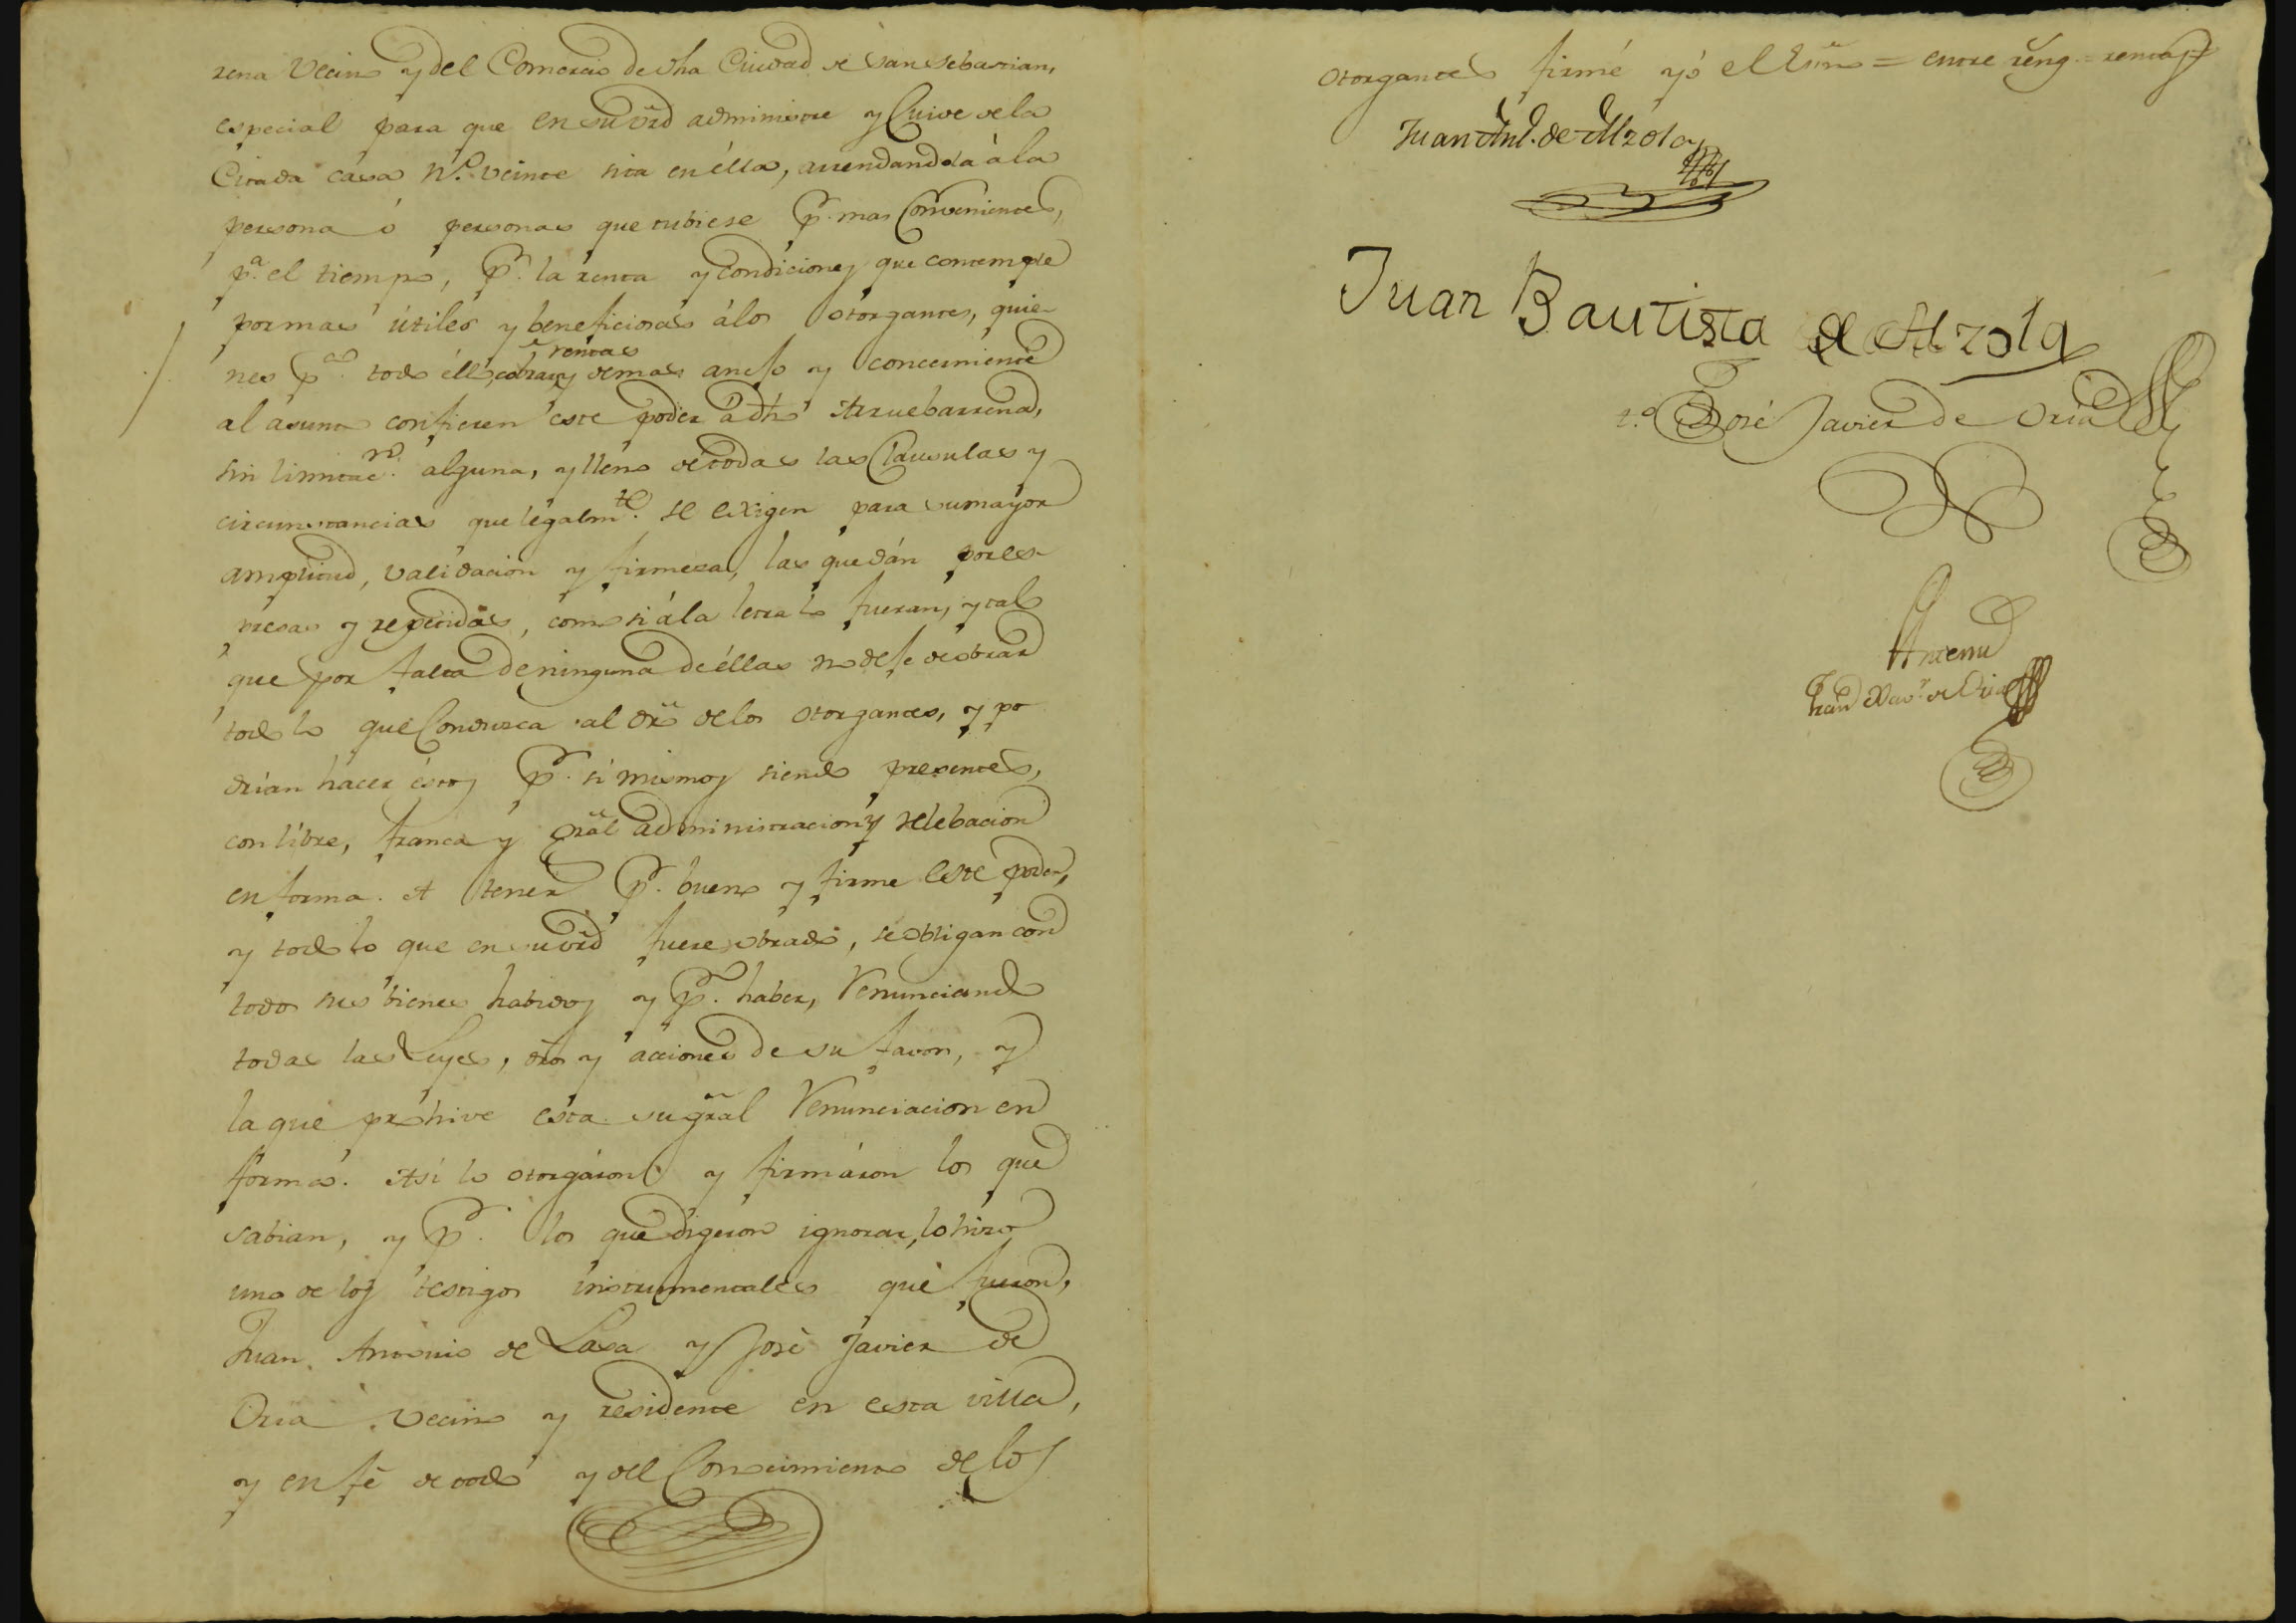 rena Vecino y del Comercio de dha Ciudad de San Sebastian,
especial para que en su vrd administre y Cuide de la
Citada casa N.º veinte sita en élla, arrendandola á la
persona ó personas que tubiese p.r mas Convenientes,
p.a el tiempo, p.r la renta y condiciones que contemple
por mas útiles y beneficiosas álos otorgantes, quie-
nes p.a todo éllo, cobrar rentas y demas anejo y concerniente
al asunto confieren este poder á dho Arruebarrena,
sin limitac.n alguna, y lleno de todas las Clausulas y
circunstancias que legalm.te se exigen para su mayor
amplitud, validacion y firmeza, las que dán por es-
presas y repetidas, como si á la letra lo fueran, y tal
que por falta de ninguna de éllas no deje de obrar
todo lo que Conduzca al dro de los otorgantes, y po
drian hacer éstos p.r si mismos siendo presentes,
con libre, franca y gral administracion y relebacion
en forma. A tener p.r bueno y firme este poder,
y todo lo que en su vrd fuere obrado, se obligan con
todos sus bienes habidos y p.r haber, Renunciando
todas las Leyes, dros y acciones de su favor, y
la que prohive esta su gral Renunciacion en
forma. Asi lo otorgáron y firmáron los que
sabian, y p.r los que digeron ignorar, lo hizo
uno de los testigos instrumentales que fueron,
Juan Antonio de Lasa y José Javier de
Oria Vecino y residente en esta villa,
y en fé de todo y del Conocimiento de los
otorgantes firmé yó el Esno = entre reng. = rentas
Juan Ant. de Alzola
Juan Bautista de Alzola
t.º José Javier de Oria
Antemi
Fran Xav.r de Oria